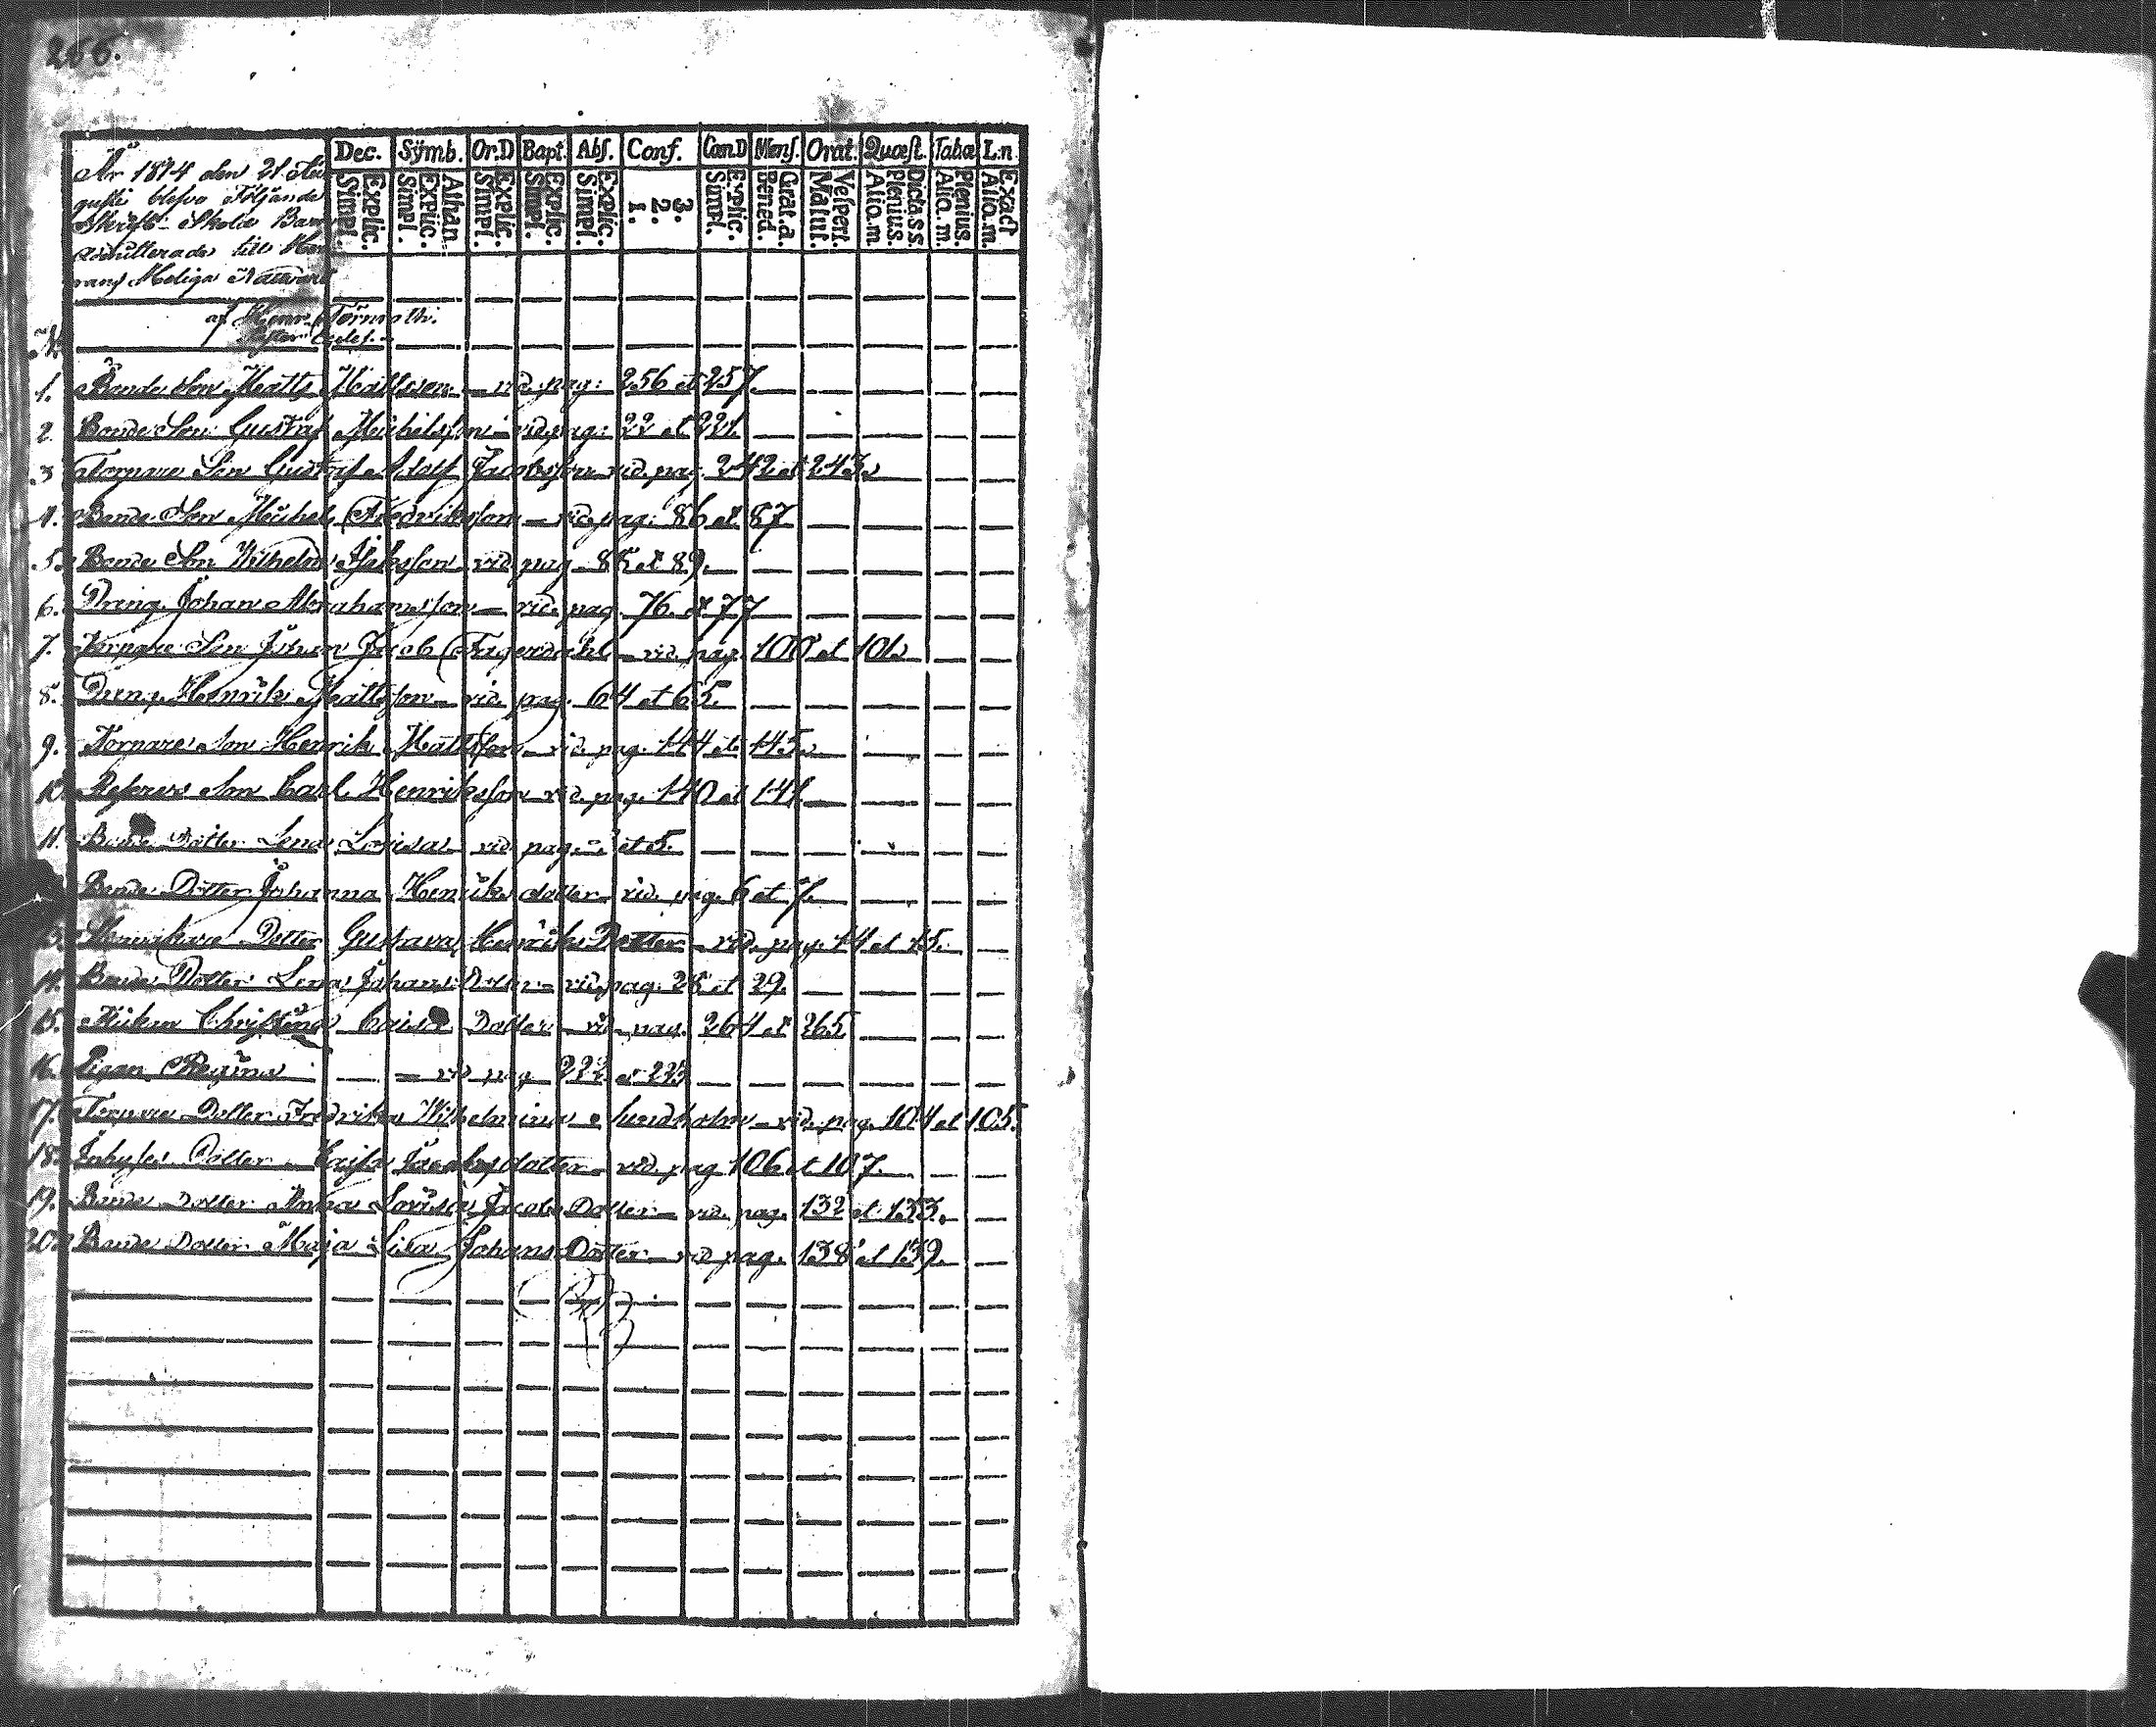 266.
Dec. Symb. Or.D Bapt. Abs. Conf. Cœn.D Mens. Orat. Quæst. Tabæ L.n
Explic. Simpl. Athan Explic. Simpl. Explic. Simpl. Explic. Simpl. Explic. Simpl. 3. 2. 1. Explic. Simpl. Grat.a. Bened. Vespert. Matut. Dicta.s.s. Plenius. Aliq.m. Plenius. Aliq.m. Exact Aliq.m.
År 1814 den 21 Au
gusti blefvo Följande
Skrift-Skole Barn
admitterade till Her
rans Heliga Nattvard
af Henr. Törnroth.
N:
1. Bonde Son Matts Mattsson vid. pag: 256 et 257.
2. Bonde Son Gustaf Michelsson vid pag: 22 et 221.
3. Torpare Son Gustaf Adolf Jacobsson vid. pag. 242 et 243.
4. Bonde Son Michel Fredriksson vid. pag: 86 et 87
5. Bonde Son Wilhelm vid pag. 88 et 89.
6. Dräng Johan Abrahamsson vid. pag 76. et 77
7. Torpare Son Johan Jacob Fagerdahl vid. pag. 100 et 101.
8. Dreng Henrik Mattsson vid. pag. 64 et 65.
9. Torpare Son Henrik Mattsson vid. pag. 144 et 145.
10. Son Carl Henriksson vid. pag. 140 et 141.
11. Bonde Dotter Lena Lovisa vid pag. et 5.
Bonde Dotter Johanna Henriksdotter vid. pag. 6 et 7.
13. Dotter Gustava Henriks Dotter vid. pag. 14 et 15.
14. Bonde Dotter Lena Johans Dotter vid. pag. 28 et 29.
15. Pikan Christina Caisa Dotter vid. pag. 264 et 265
16. Pigan Regina vid pag 222 et 223
17. Torpare Dotter Fredrika Wilhelmina Lundholm vid. pag. 104 et 105.
18. Inhyses Dotter Caisa Jacobsdotter vid. pag 106 et 107.
19. Bonde Dotter Anna Lovisa Jacobs Dotter vid. pag. 132 et 133.
20. Bonde Dotter Maja Lisa Johans Dotter vid pag. 138 et 139.